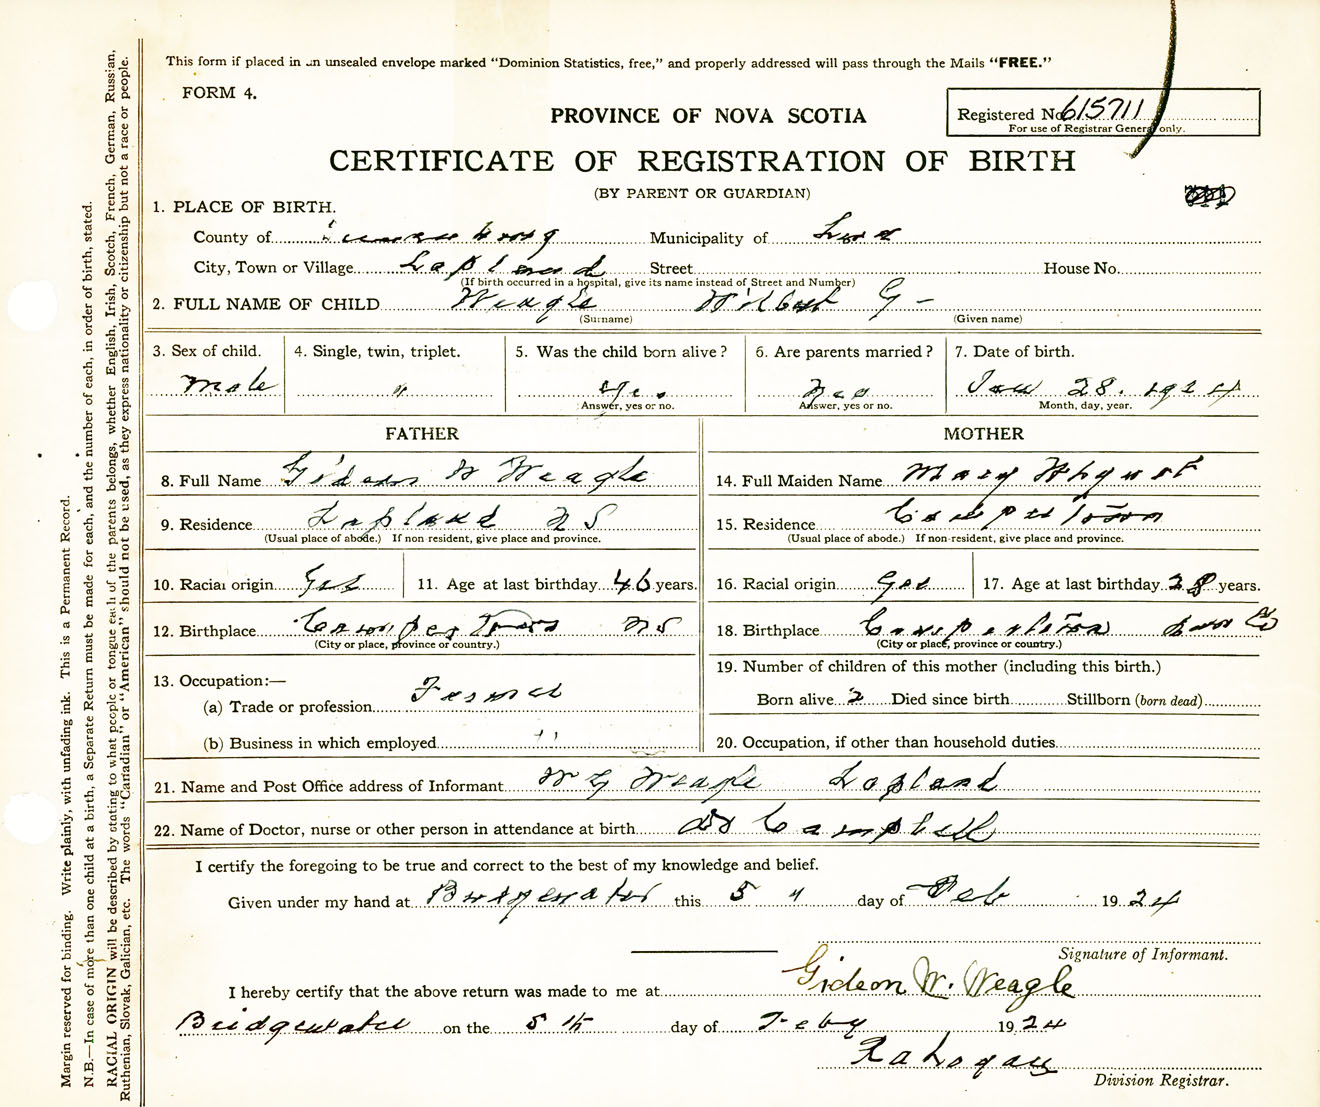 This form if placed in an unsealed envelope marked "Dominion Statistics, free," and properly addressed will pass through the Mails "FREE."
FORM 4.
PROVINCE OF NOVA SCOTIA
Registered No. 615711
For use of Registrar General only.
CERTIFICATE OF REGISTRATION OF BIRTH
(BY PARENT OR GUARDIAN)
1. PLACE OF BIRTH.
County of Lunenburg Municipality of Lun
City, Town or Village Lapland Street House No.
(If birth occurred in a hospital, give its name instead of Street and Number)
2. FULL NAME OF CHILD Weagle Wilbert G-
(Surname) (Given name)
3. Sex of child. 4. Single, twin, triplet. 5. Was the child born alive? 6. Are parents married? 7. Date of birth.
Male " Yes Yes Jan 28. 1924
Answer, yes or no. Answer, yes or no. Month, day, year.
FATHER MOTHER
8. Full Name Gideon W Weagle 14. Full Maiden Name Mary
9. Residence Lapland NS 15. Residence
(Usual place of abode.) If non resident, give place and province. (Usual place of abode.) If non-resident, give place and province.
10. Racial origin Ger 11. Age at last birthday 46 years. 16. Racial origin Ger 17. Age at last birthday 28 years.
12. Birthplace NS 18. Birthplace Lun Co
(City or place, province or country.) (City or place, province or country.)
19. Number of children of this mother (including this birth.)
13. Occupation:—
(a) Trade or profession Farmer Born alive 2 Died since birth Stillborn (born dead)
(b) Business in which employed " 20. Occupation, if other than household duties
21. Name and Post Office address of Informant W G Weagle Lapland
22. Name of Doctor, nurse or other person in attendance at birth Dr Campbell
I certify the foregoing to be true and correct to the best of my knowledge and belief.
Given under my hand at Bridgewater this 5 " day of Feb 1924
Signature of Informant.
Gideon W. Weagle
I hereby certify that the above return was made to me at
Bridgewater on the 5th day of Feby 1924
Division Registrar.
Margin reserved for binding. Write plainly, with unfading ink. This is a Permanent Record.
N.B.—In case of more than one child at a birth, a Separate Return must be made for each, and the number of each, in order of birth, stated.
RACIAL ORIGIN will be described by stating to what people or tongue each of the parents belongs, whether English, Irish, Scotch, French, German, Russian,
Ruthenian, Slovak, Galician, etc. The words "Canadian" or "American" should not be used, as they express nationality or citizenship but not a race or people.